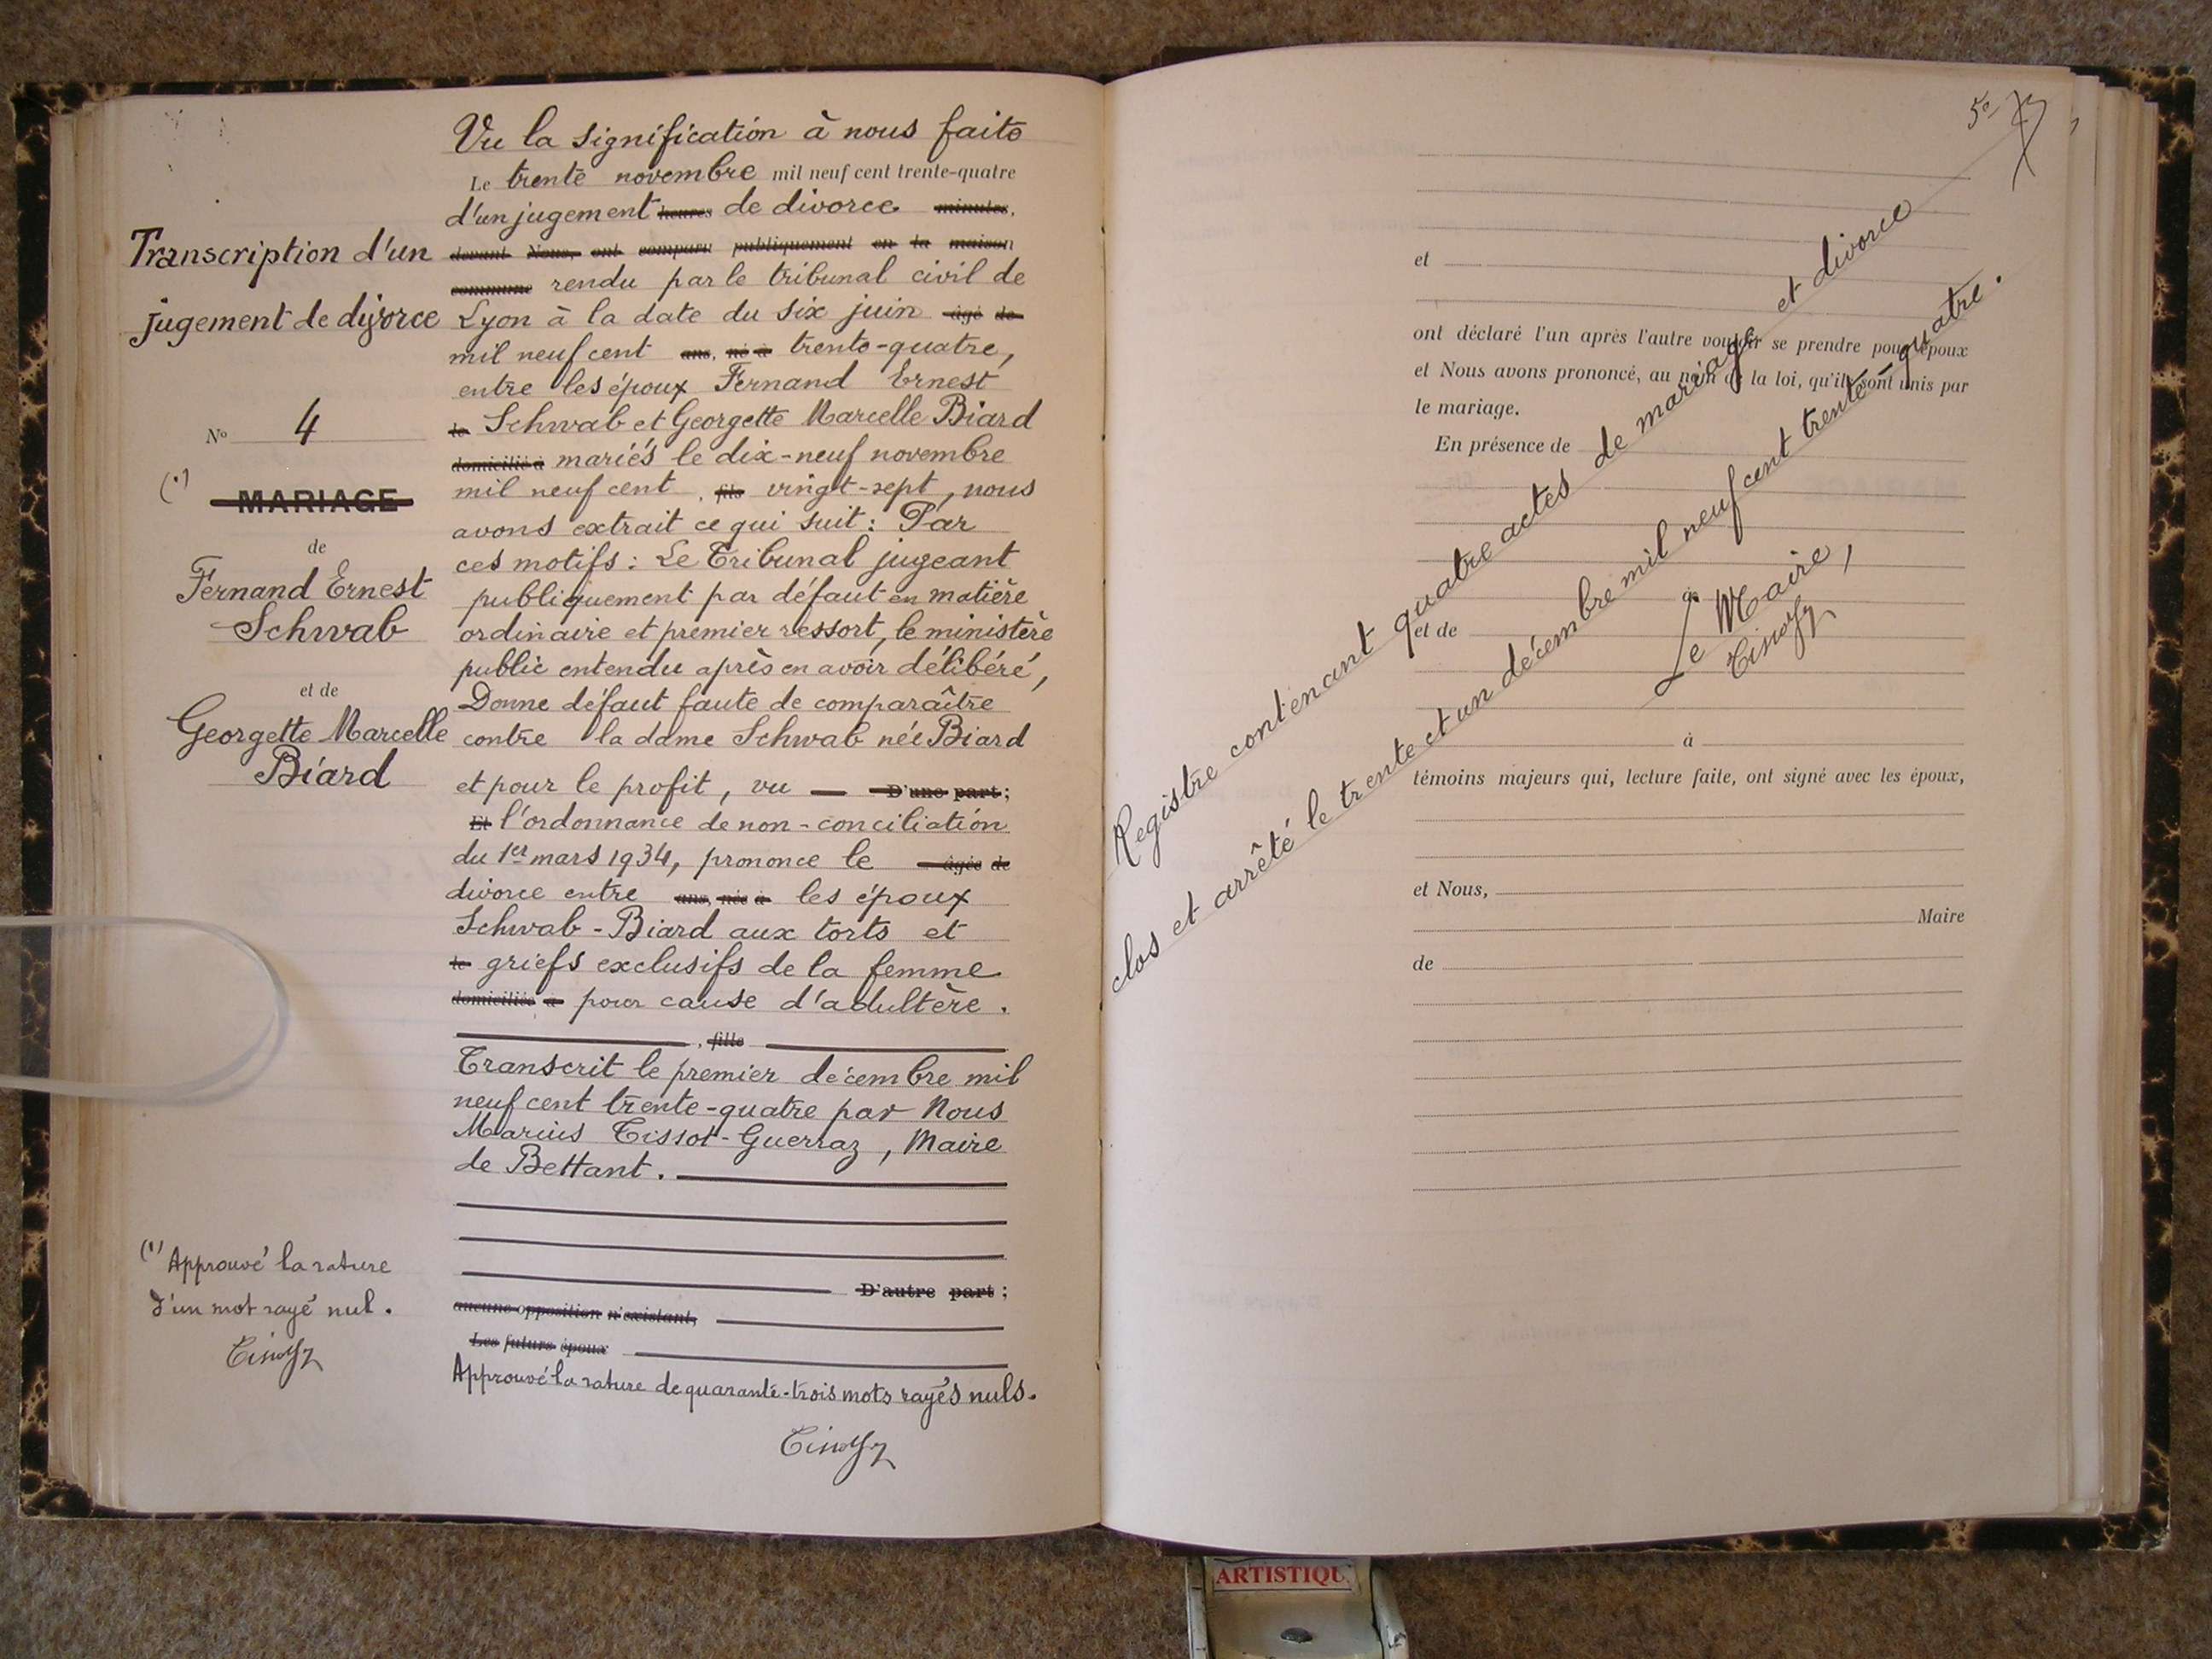 Transcription d'un
jugement de divorce
No 4
(1)
MARIAGE
de
Fernand Ernest
Schwab
et de
Georgette Marcelle
Biard
(1) Approuvé la rature
d'un mot rayé nul.
Vu la signification à nous faite
Le trente novembre mil neuf cent trente-quatre
d'un jugement heures de divorce minutes,
devant Nous, ont comparu publiquement en la maison
commune rendu par le tribunal civil de
Lyon à la date du six juin âgé de
mil neuf cent ans, né à trente-quatre,
entre les époux Fernand Ernest
le Schwab et Georgette Marcelle Biard
domicilié à mariés le dix-neuf novembre
mil neuf cent , fils vingt-sept, nous
avons extrait ce qui suit : Par
ces motifs : Le Tribunal jugeant
publiquement par défaut en matière
ordinaire et premier ressort, le ministère
public entendu après en avoir délibéré,
Donne défaut faute de comparaître
contre la dame Schwab née Biard
et pour le profit, vu — D'une part ;
Et l'ordonnance de non-conciliation
du 1er mars 1934, prononce le âgée de
divorce entre ans, née à les époux
Schwab-Biard aux torts et
le griefs exclusifs de la femme
domiciliée à pour cause d'adultère.
, fille
Transcrit le premier décembre mil
neuf cent trente-quatre par Nous
Marius Tissot-Guerraz, Maire
de Bettant.
D'autre part ;
aucune opposition n'existant,
Les futurs époux
Approuvé la rature de quarante-trois mots rayés nuls.
et
ont déclaré l'un après l'autre vouloir se prendre pour époux
et Nous avons prononcé, au nom de la loi, qu'ils sont unis par
le mariage.
En présence de
à
et de
à
témoins majeurs qui, lecture faite, ont signé avec les époux,
et Nous,
Maire
de
Registre contenant quatre actes de mariage et divorce
clos et arrêté le trente et un décembre mil neuf cent trente-quatre.
Le Maire,
ARTISTIQU